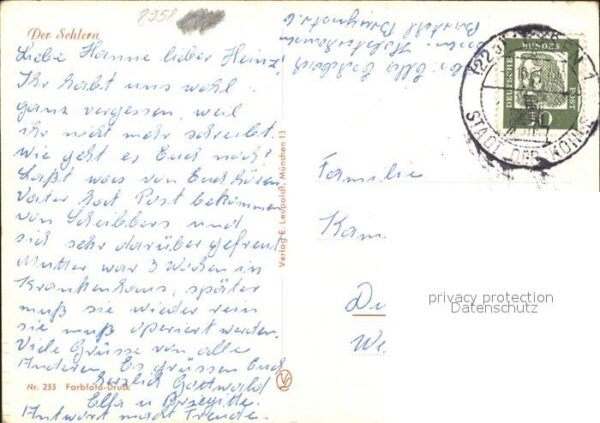 8958
Der Schlern
Liebe Hanne lieber Heinz!
Ihr habt uns wohl
ganz vergessen, weil
ihr nicht mehr schreibt.
Wie geht es Euch noch?
Laßt was von Euch hören
Vater hat Post bekommen
von Scheibbers und
sich sehr darüber gefreut.
Mutter war 3 Wochen in
Krankenhaus, später
muß sie wieder rein
sie muß operiert werden.
Viele Grüsse von aller
Anderen. Es grüssen Euch
herzlich Gottwald
Elfa u Brigitte.
Antwort macht Freude.
Nr. 233 Farbfoto-Druck
Verlag E. Leopoldt, München 13
DEUTSCHE BUNDESPOST
STADT DER
Familie
Kam
De
We
privacy protection
Datenschutz